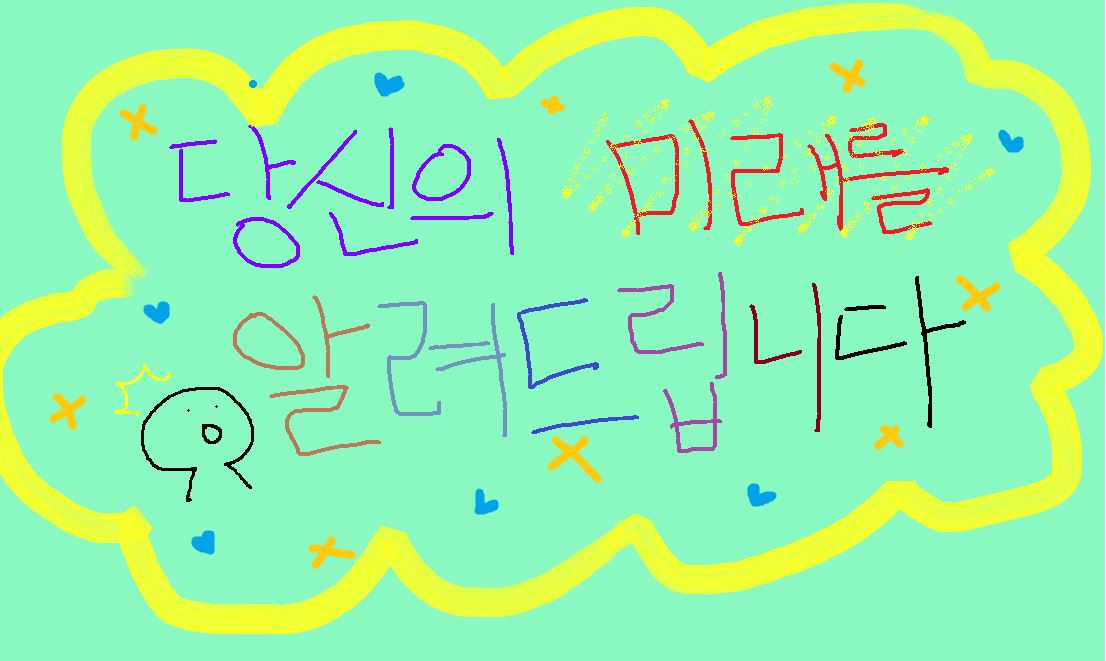 당신의 미래를
알려드립니다